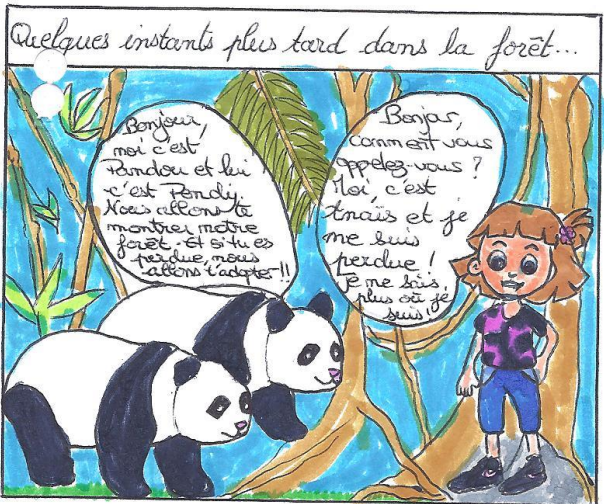 Quelques instants plus tard dans la forêt...
Bonjour,
moi c'est
Pandou et lui
c'est Pendy.
Nous allons te
montrer notre
forêt. Et si tu es
perdue, nous
allons t'adopter!!
Bonjour,
comment vous
appelez-vous ?
Moi, c'est
Anaïs et je
me suis
perdue !
Je ne sais
plus où je
suis!